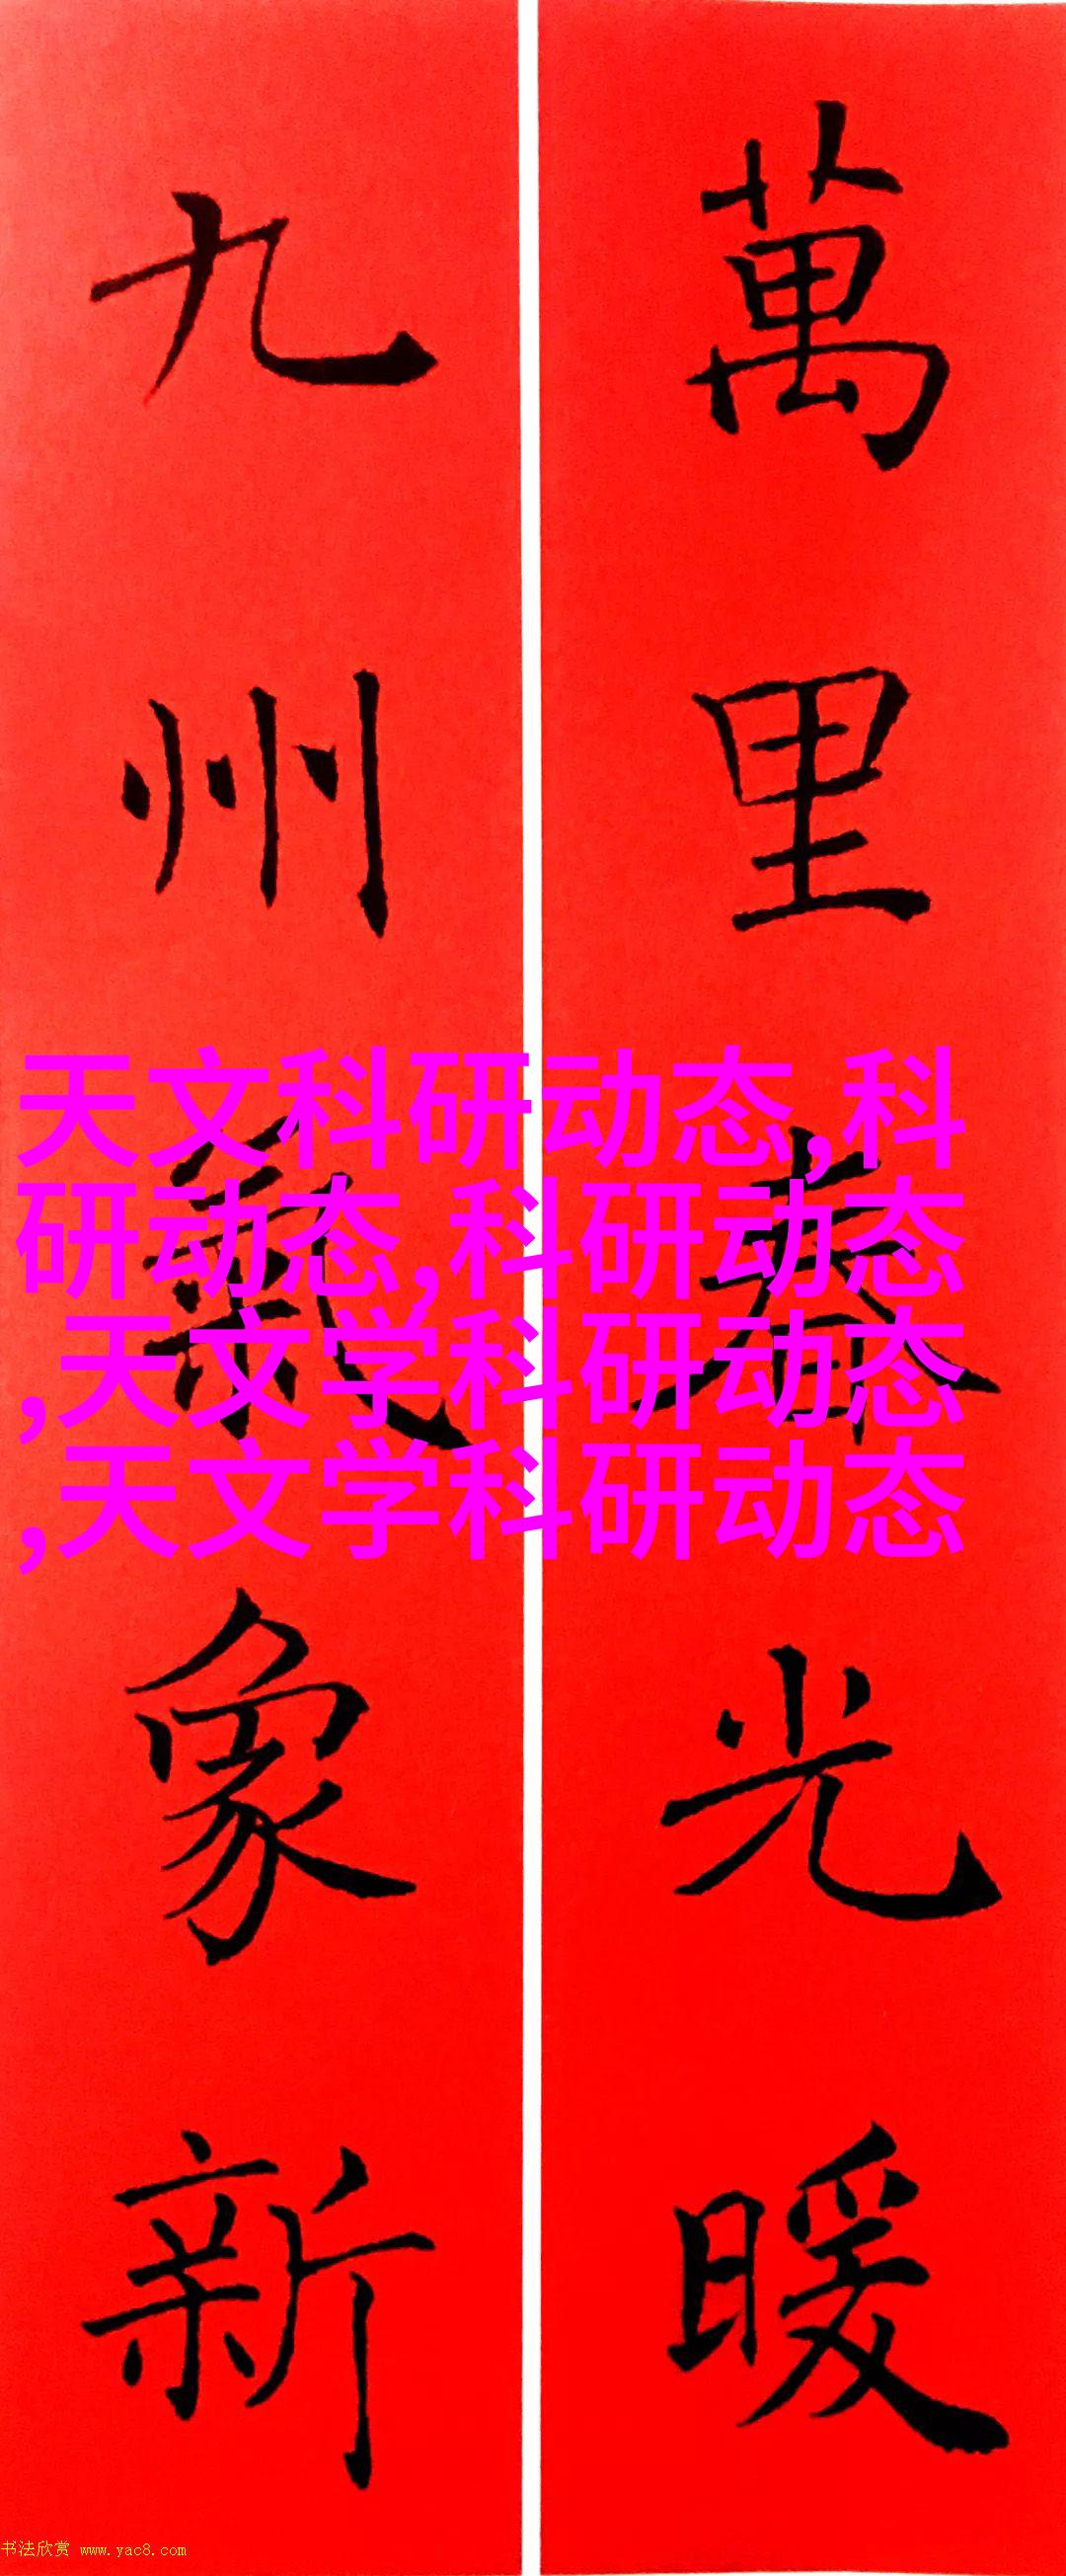 萬里春光暖
九州氣象新
天文科研动态,科
研动态,科研动态
,天文学科研动态
,天文学科研动态
书法欣赏 www.yac8.com